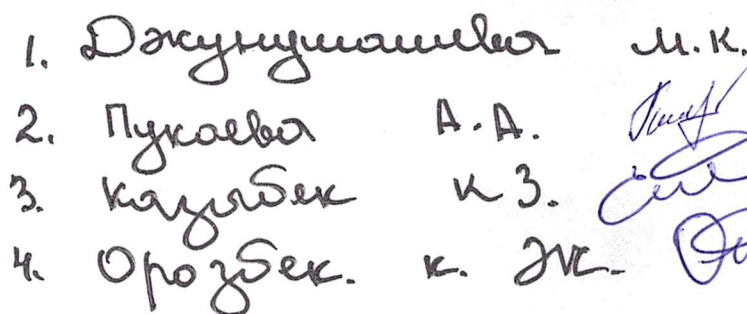 1. Джунушалиева М.К.
2. Пукаева А.А.
3. Казыбек к З.
4. Орозбек. к. Ж.